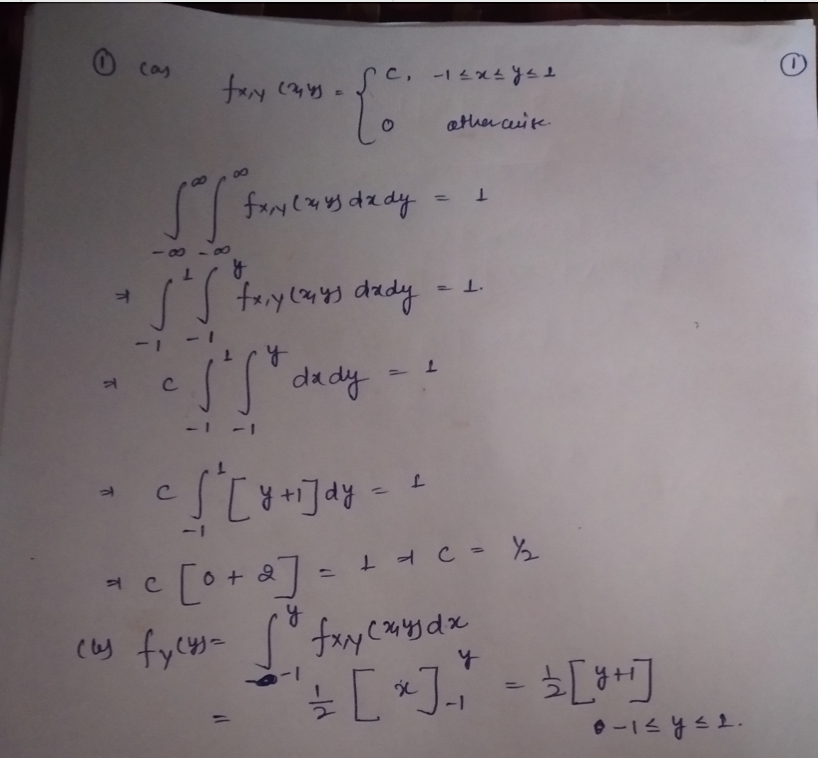 ① (a) f_{X,Y}(x,y) = { C, -1 ≤ x ≤ y ≤ 1 ①
0 otherwise.
∫_{-∞}^{∞} ∫_{-∞}^{∞} f_{X,Y}(x,y) dx dy = 1
⇒ ∫_{-1}^{1} ∫_{-1}^{y} f_{X,Y}(x,y) dx dy = 1.
⇒ C ∫_{-1}^{1} ∫_{-1}^{y} dx dy = 1
⇒ C ∫_{-1}^{1} [y+1] dy = 1
⇒ C [0 + 2] = 1 ⇒ C = 1/2
(b) f_Y(y) = ∫_{-1}^{y} f_{X,Y}(x,y) dx
= 1/2 [x]_{-1}^{y} = 1/2 [y+1]
-1 ≤ y ≤ 1.